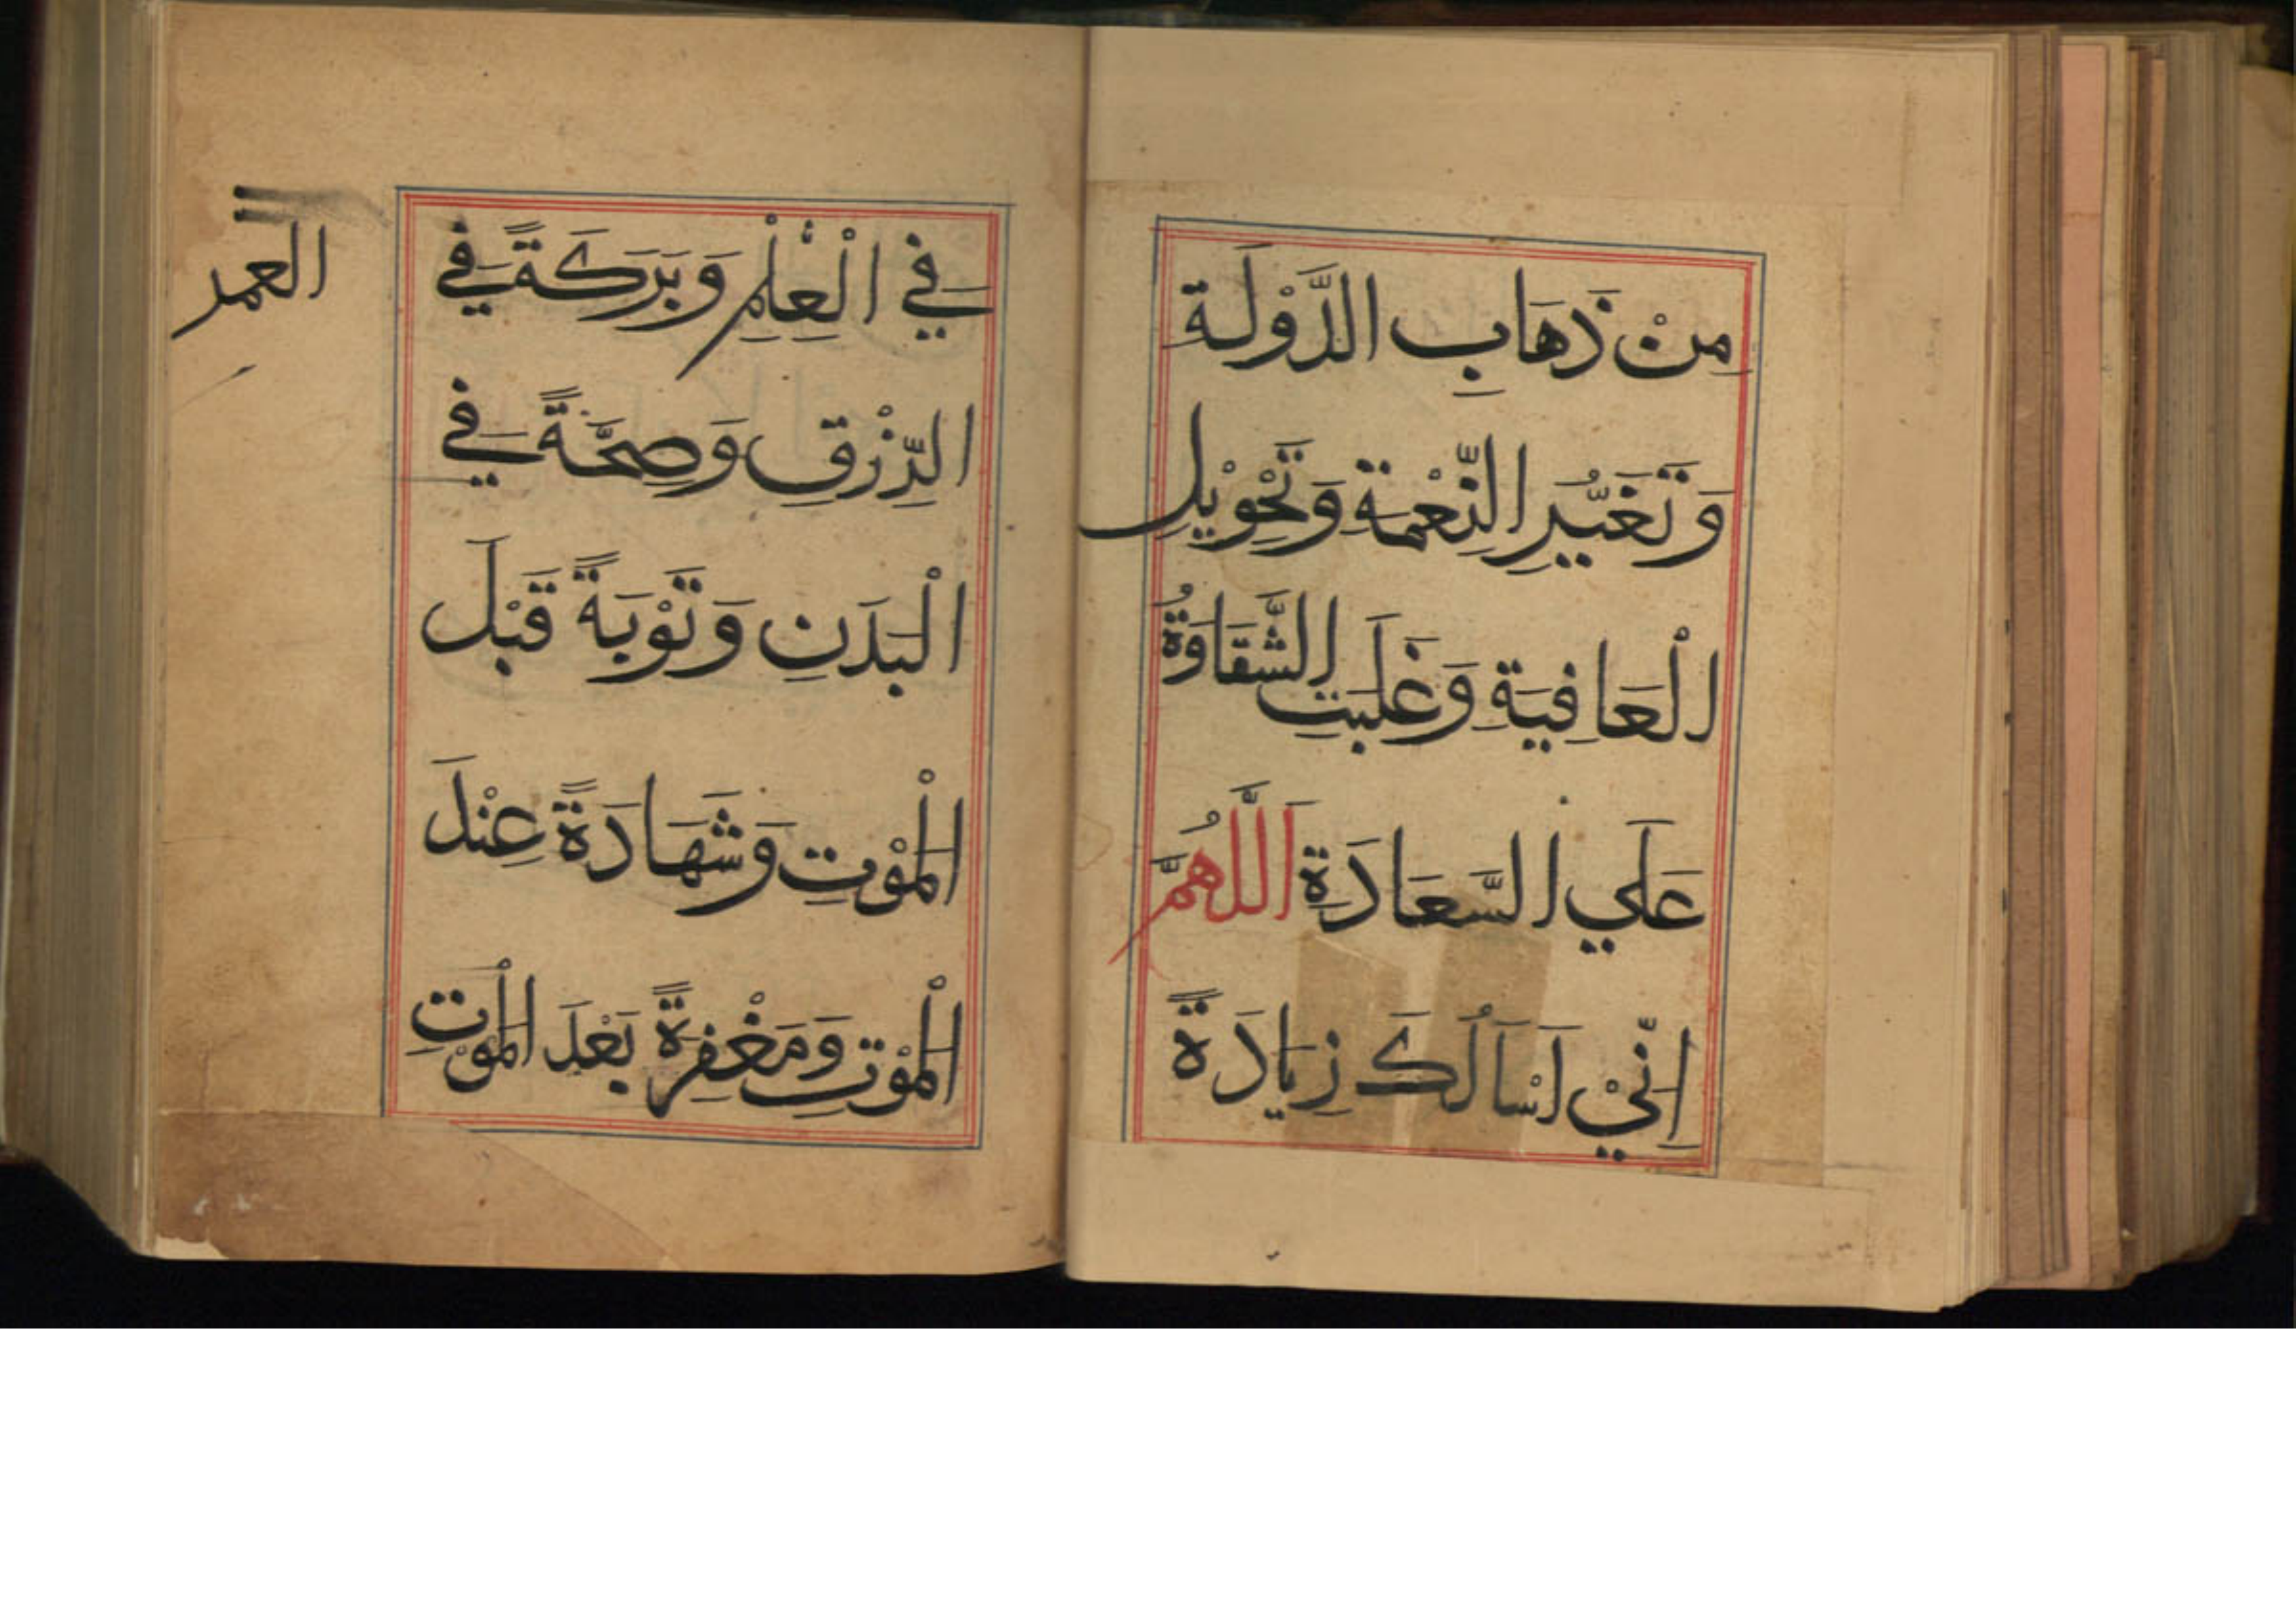 مِنْ ذَهَابِ الدَّوْلَةِ
وَتَغَيُّرِ النِّعْمَةِ وَتَحْوِيْلِ
الْعَافِيَةِ وَغَلَبَتِ الشَّقَاوَةُ
عَلَي السَّعَادَةِ اَللّٰهُمَّ
اِنِّيْ اَسْاَلُكَ زِيَادَةً
فِي الْعِلْمِ وَبَرَكَةً فِي
العمر
الرِّزْقِ وَصِحَّةً فِي
الْبَدَنِ وَتَوْبَةً قَبْلَ
الْمَوْتِ وَشَهَادَةً عِنْدَ
الْمَوْتِ وَمَغْفِرَةً بَعْدَ الْمَوْتِ